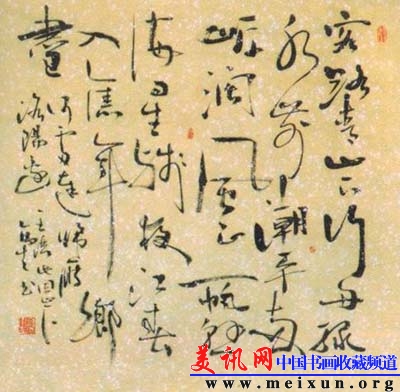 客路青山下行舟綠
水前潮平兩
岸闊風正一帆懸
海日生殘夜江春
入舊年鄉
書
何處達歸雁
洛陽邊
王灣次北固山下
书
美讯网 中国书画收藏频道
www.meixun.org